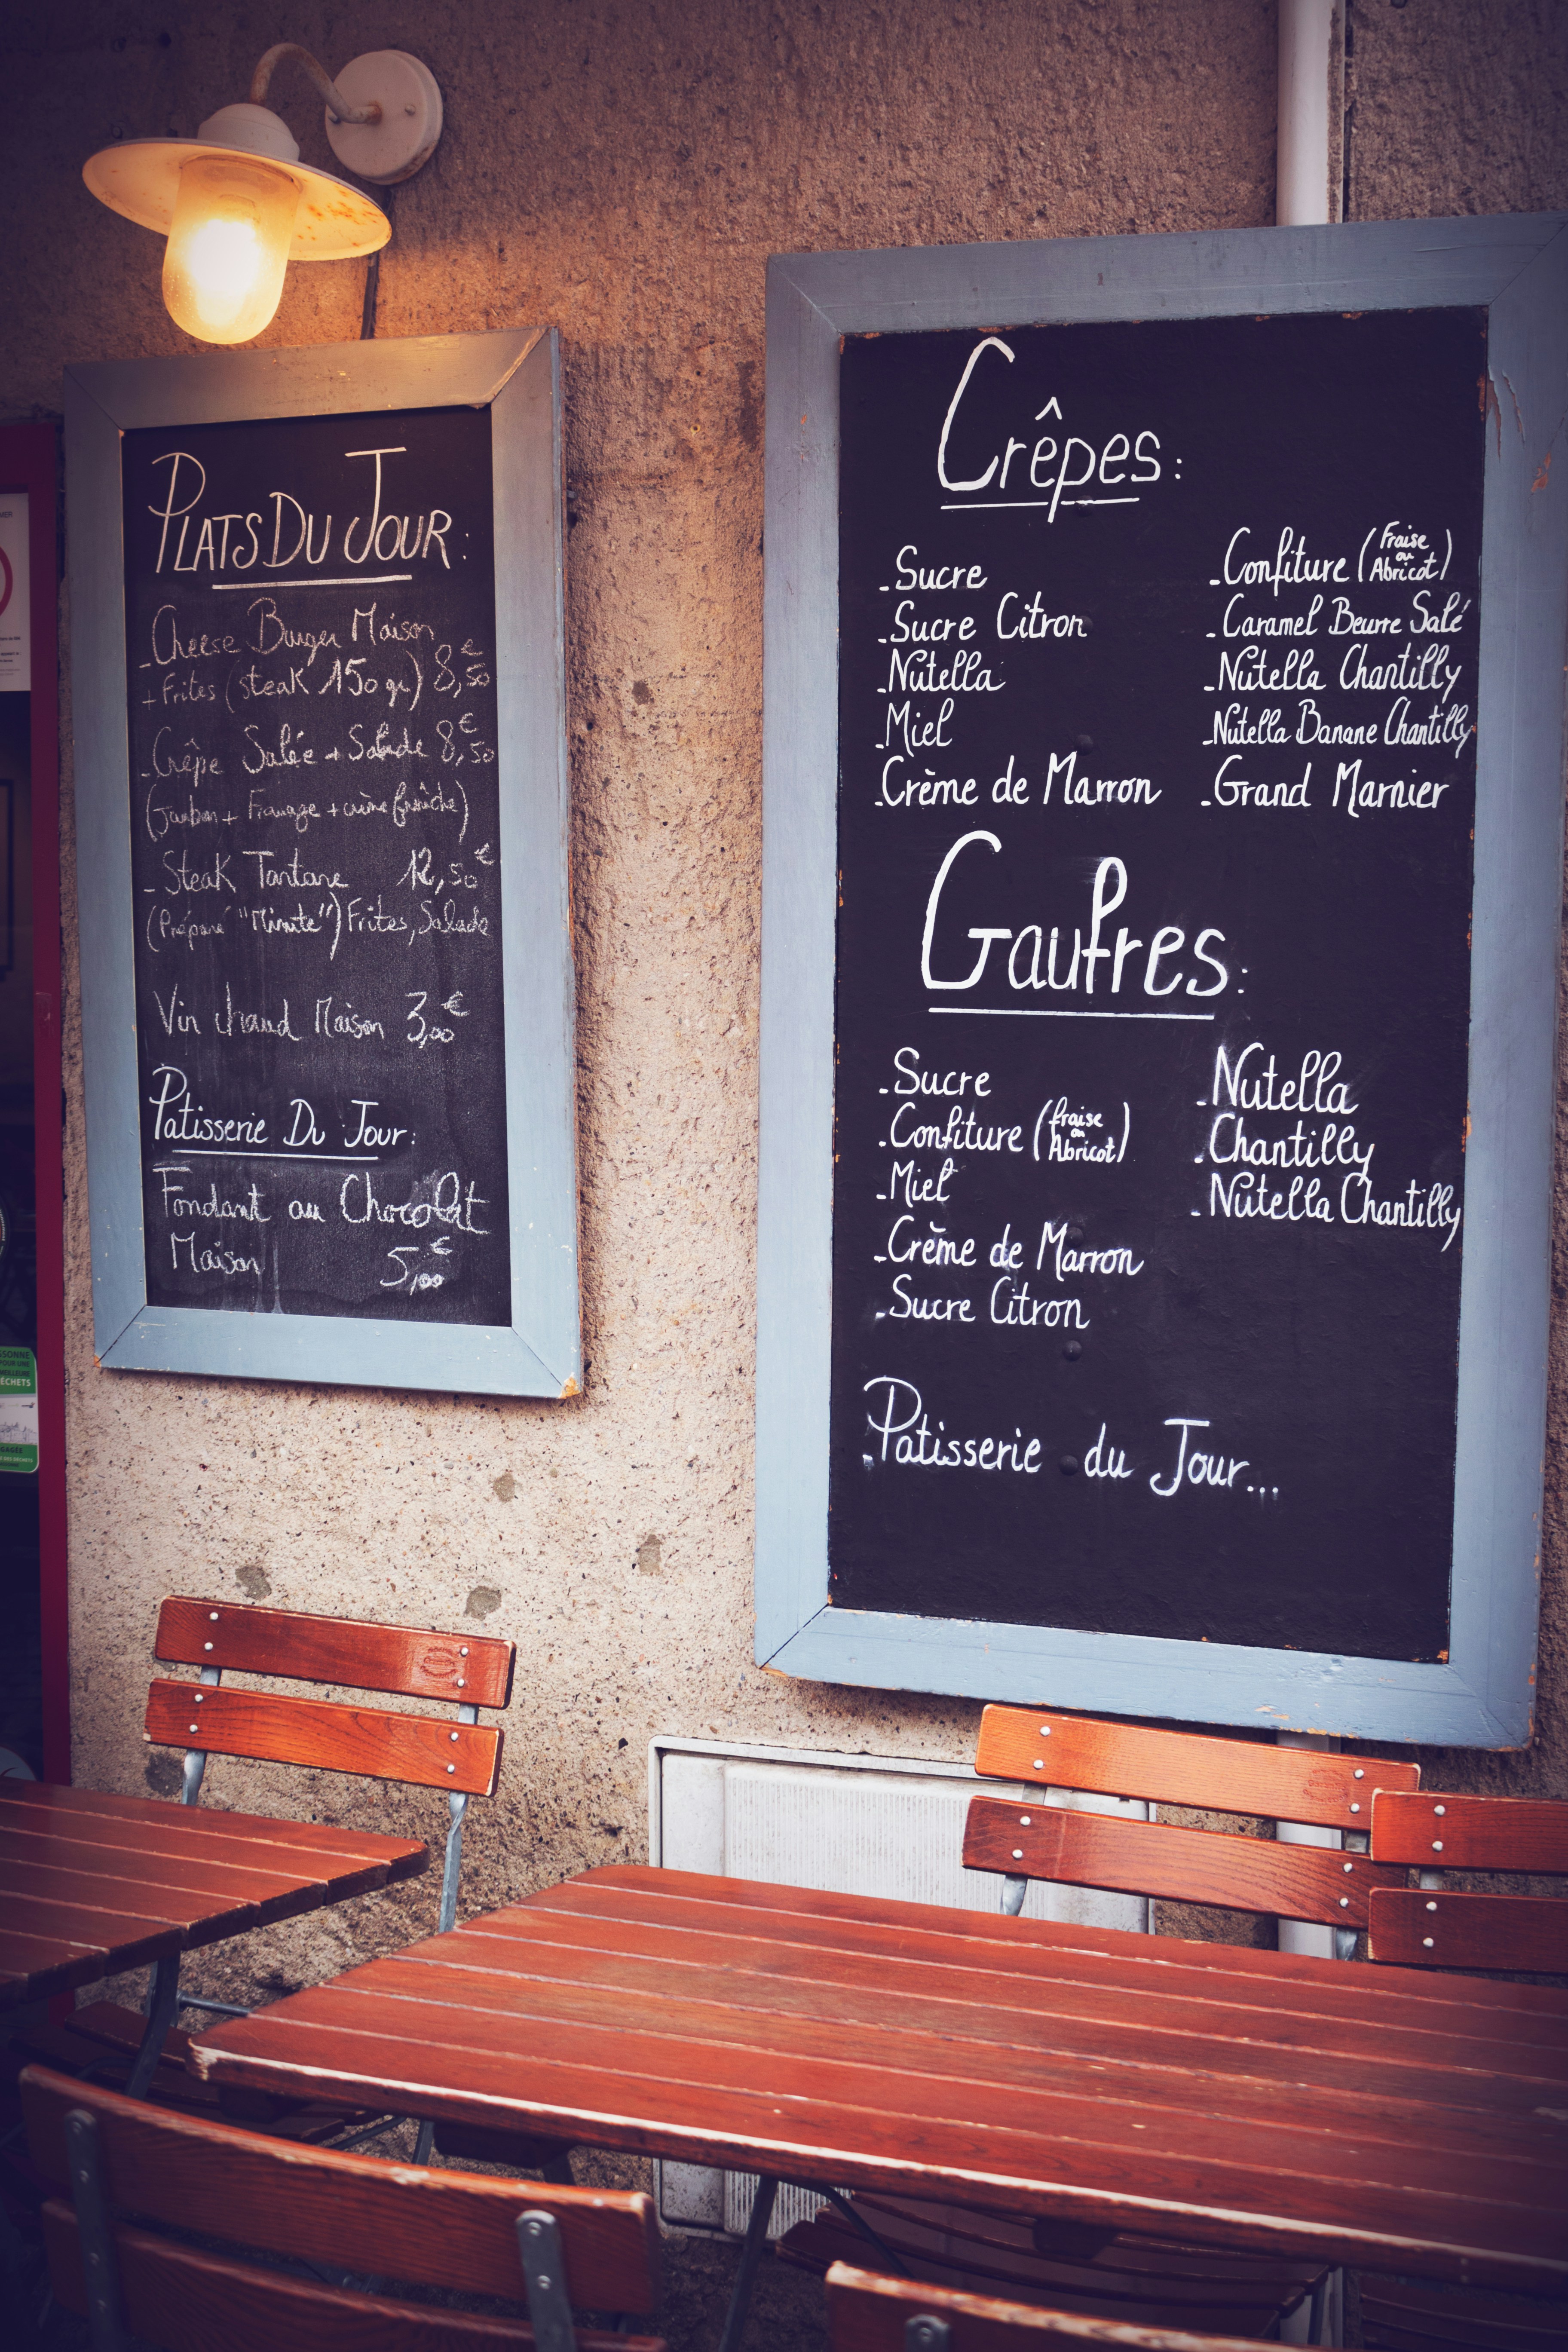 PLATS DU JOUR:
- Cheese Burger Maison
+ Frites (steak 150 gr) 8,50€
- Crêpe Salée + Salade 8,50€
(Jambon + Fromage + crème fraîche)
- Steak Tartare 12,50€
(Préparé "Minute") Frites, Salade
Vin chaud Maison 3,00€
Patisserie Du Jour:
Fondant au Chocolat
Maison 5,00€
Crêpes:
- Sucre
- Sucre Citron
- Nutella
- Miel
- Crème de Marron
- Confiture (Fraise ou Abricot)
- Caramel Beurre Salé
- Nutella Chantilly
- Nutella Banane Chantilly
- Grand Marnier
Gaufres:
- Sucre
- Confiture (fraise ou Abricot)
- Miel
- Crème de Marron
- Sucre Citron
- Nutella
- Chantilly
- Nutella Chantilly
- Patisserie du Jour...
SSONNE
POUR UNE
ÉCHETS
GAGÉE